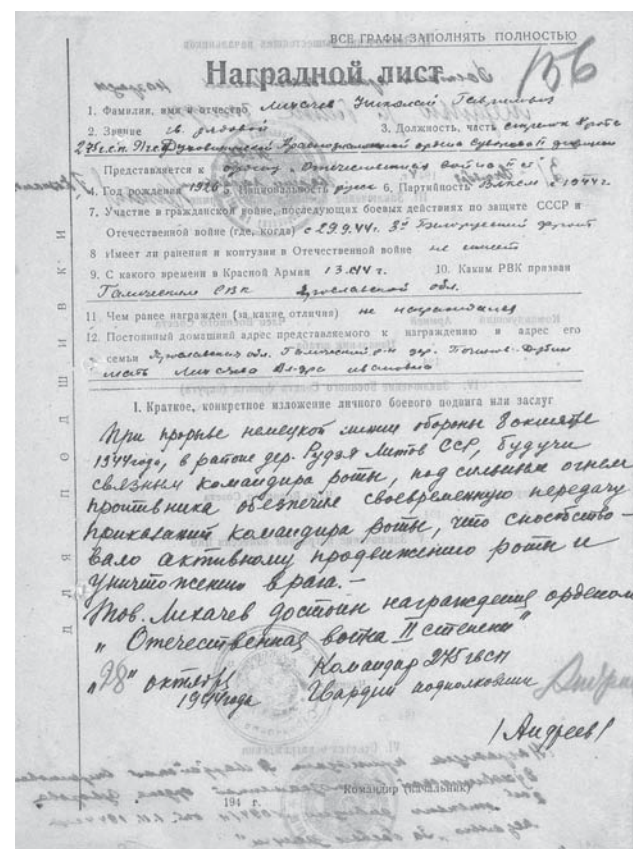 ВСЕ ГРАФЫ ЗАПОЛНЯТЬ ПОЛНОСТЬЮ
156
Наградной лист
1. Фамилия, имя и отчество Лихачев Николай Гаврилович
2. Звание гв. рядовой 3. Должность, часть стрелок роты
275 г.с.п. 91 гв. Духовщинской Краснознаменной ордена Суворова II дивизии
Представляется к ордену „Отечественная война II ст"
4. Год рождения 1926 5. Национальность русск 6. Партийность Влксм с 1944 г.
7. Участие в гражданской войне, последующих боевых действиях по защите СССР и
Отечественной войне (где, когда) с 29.9.44г. 3й Белорусский фронт
8 Имеет ли ранения и контузии в Отечественной войне не имеет
9. С какого времени в Красной Армии 10. Каким РВК призван
Галическим РВК Ярославской обл.
11. Чем ранее награжден (за какие отличия) не награждался
12. Постоянный домашний адрес представляемого к награждению и адрес его
семьи Ярославская обл. Галический р-н дер.
мать Лихачева ивановна
I. Краткое, конкретное изложение личного боевого подвига или заслуг
При прорыве немецкой линии обороны 8 октября
1944 года, в районе дер. Рудзя Литов ССР, будучи
связным командира роты, под сильным огнем
противника обеспечил своевременную передачу
приказаний командира роты, что способство-
вало активному продвижению роты и
уничтожению врага. –
Тов. Лихачев достоин награждения орденом
„Отечественная война II степени"
Командир 275 гвсп
„28" октября Гвардии подполковник
1944 года
/Андреев/
194 г. Командир (начальник)
ДЛЯ ПОДШИВКИ